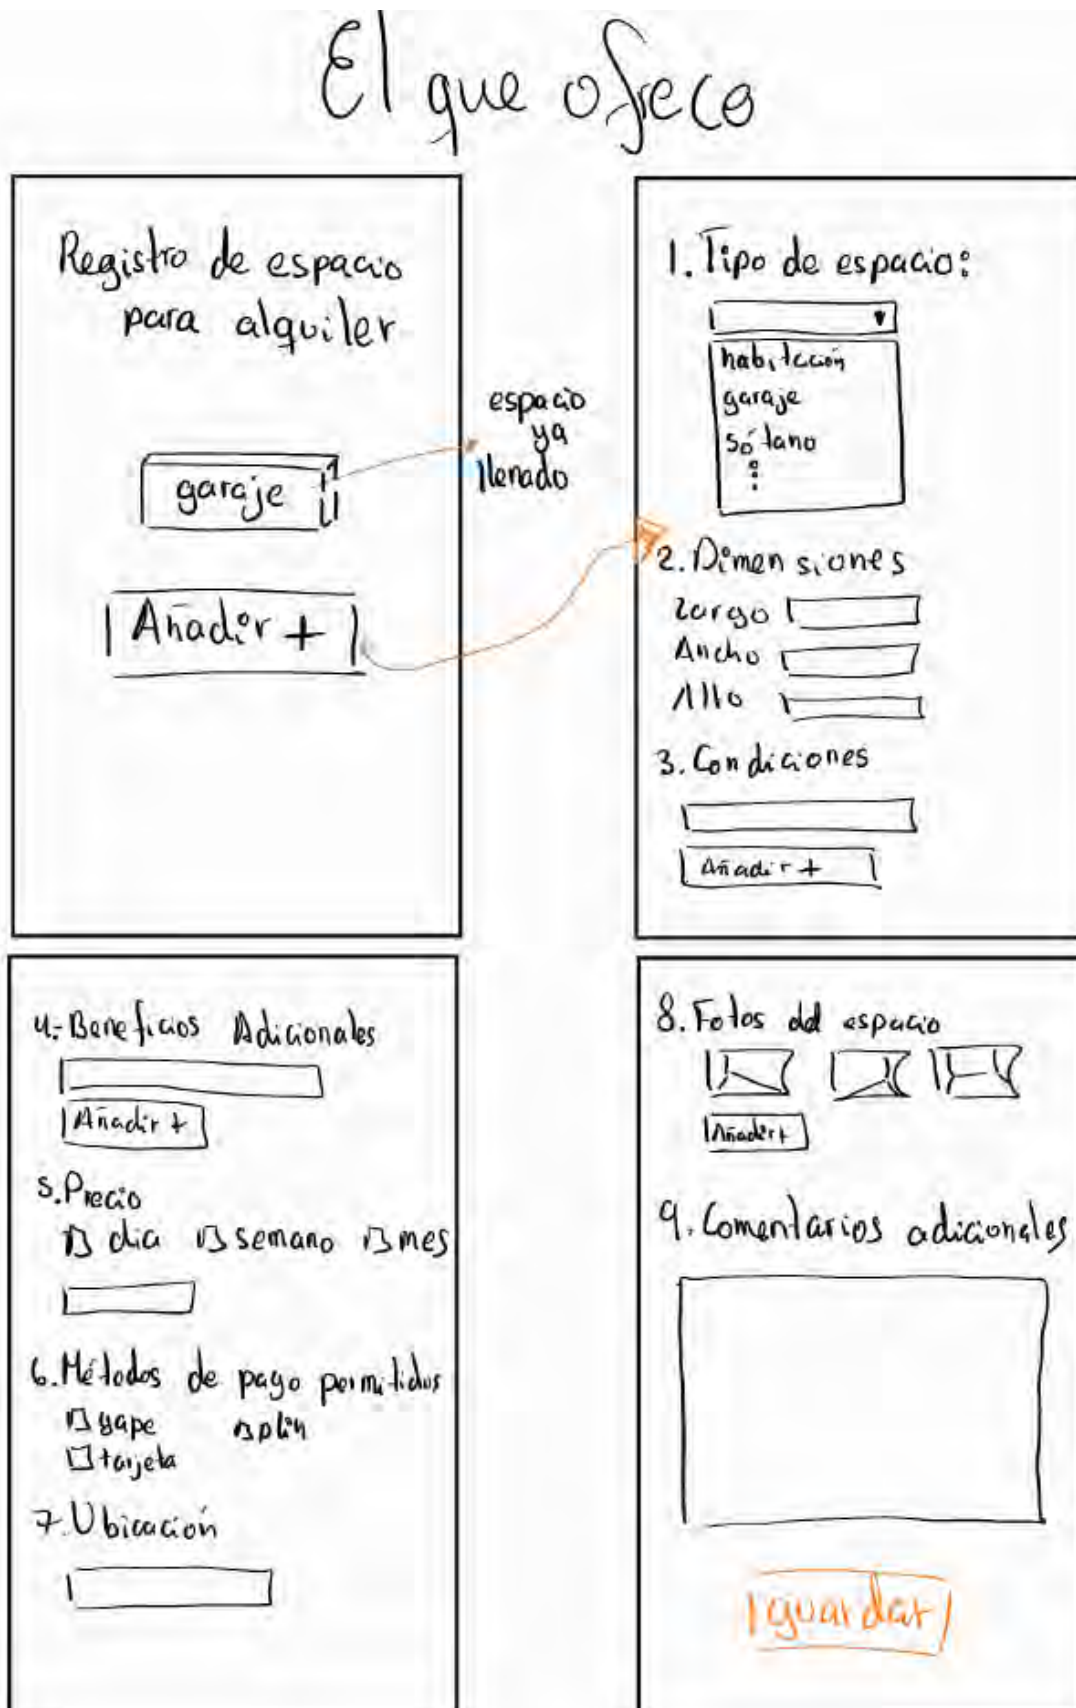 El que ofrece
Registro de espacio
para alquiler
garaje
Añadir +
espacio
ya
llenado
1. Tipo de espacio:
habitación
garaje
sótano
2. Dimensiones
Largo
Ancho
Alto
3. Condiciones
Añadir +
4.- Beneficios Adicionales
Añadir +
5. Precio
dia semana mes
6. Métodos de pago permitidos
yape plin
tarjeta
7. Ubicación
8. Fotos del espacio
Añadir +
9. Comentarios adicionales
guardar